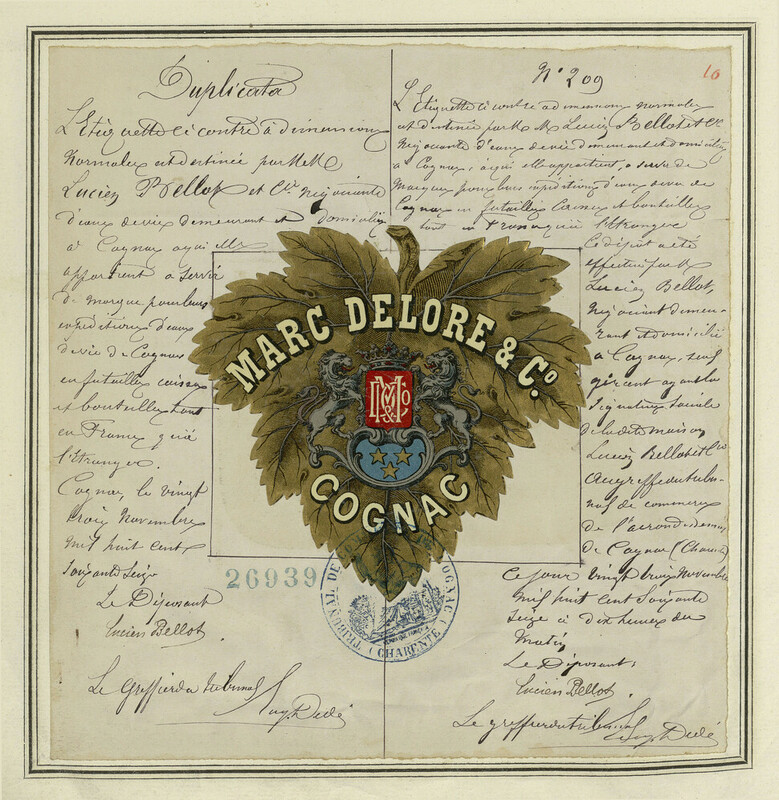 Duplicata
L'Etiquette ci contre à dimensions
normales est destinée par MM.
Lucien Bellot et Cie. négociants
d'eaux de vie demeurant et domiciliés
à Cognac, à qui elle
appartient, à servir
de marque pour leurs
expéditions d'eaux
de vie de Cognac
en futailles caisses
et bouteilles tant
en France qu'à
l'Etranger.
Cognac le vingt
trois Novembre
mil huit cent
soixante seize
Le Déposant
Lucien Bellot.
Le Greffier du tribunal
N° 209
10
L'Etiquette ci contre à dimensions normales
est destinée par MM. Lucien Bellot et Cie
négociants d'eaux de vie demeurant et domiciliés
à Cognac, à qui elle appartient, à servir de
marque pour leurs expéditions d'eaux de vie de
Cognac en futailles caisses et bouteilles
tant en France qu'à l'Etranger
Ce dépôt a été
effectué par M.
Lucien Bellot,
négociant demeu-
rant et domicilié
à Cognac, seul
gérant ayant la
signature sociale
de la dite maison
Lucien Bellot et Cie
au greffe du tribu-
nal de commerce
de l'arrondissement
de Cognac (Charente)
ce jour vingt trois Novembre
mil huit cent soixante
seize à dix heures du
matin
Le Déposant,
Lucien Bellot.
Le greffier du tribunal
MARC DELORE & Co.
MD & Co
COGNAC
26939
TRIBUNAL DE COGNAC
(CHARENTE)